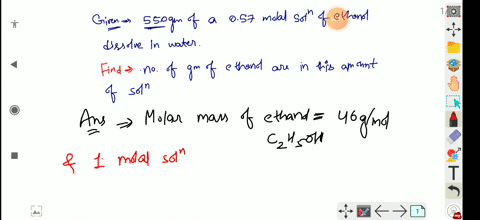 Given → 550gm of a 0.57 molal solⁿ of ethanol
dissolve in water.
Find → no. of gm of ethanol are in this amount
of solⁿ
Ans ⇒ Molar mass of ethanol = 46g/mol
C₂H₅OH
& 1 molal solⁿ